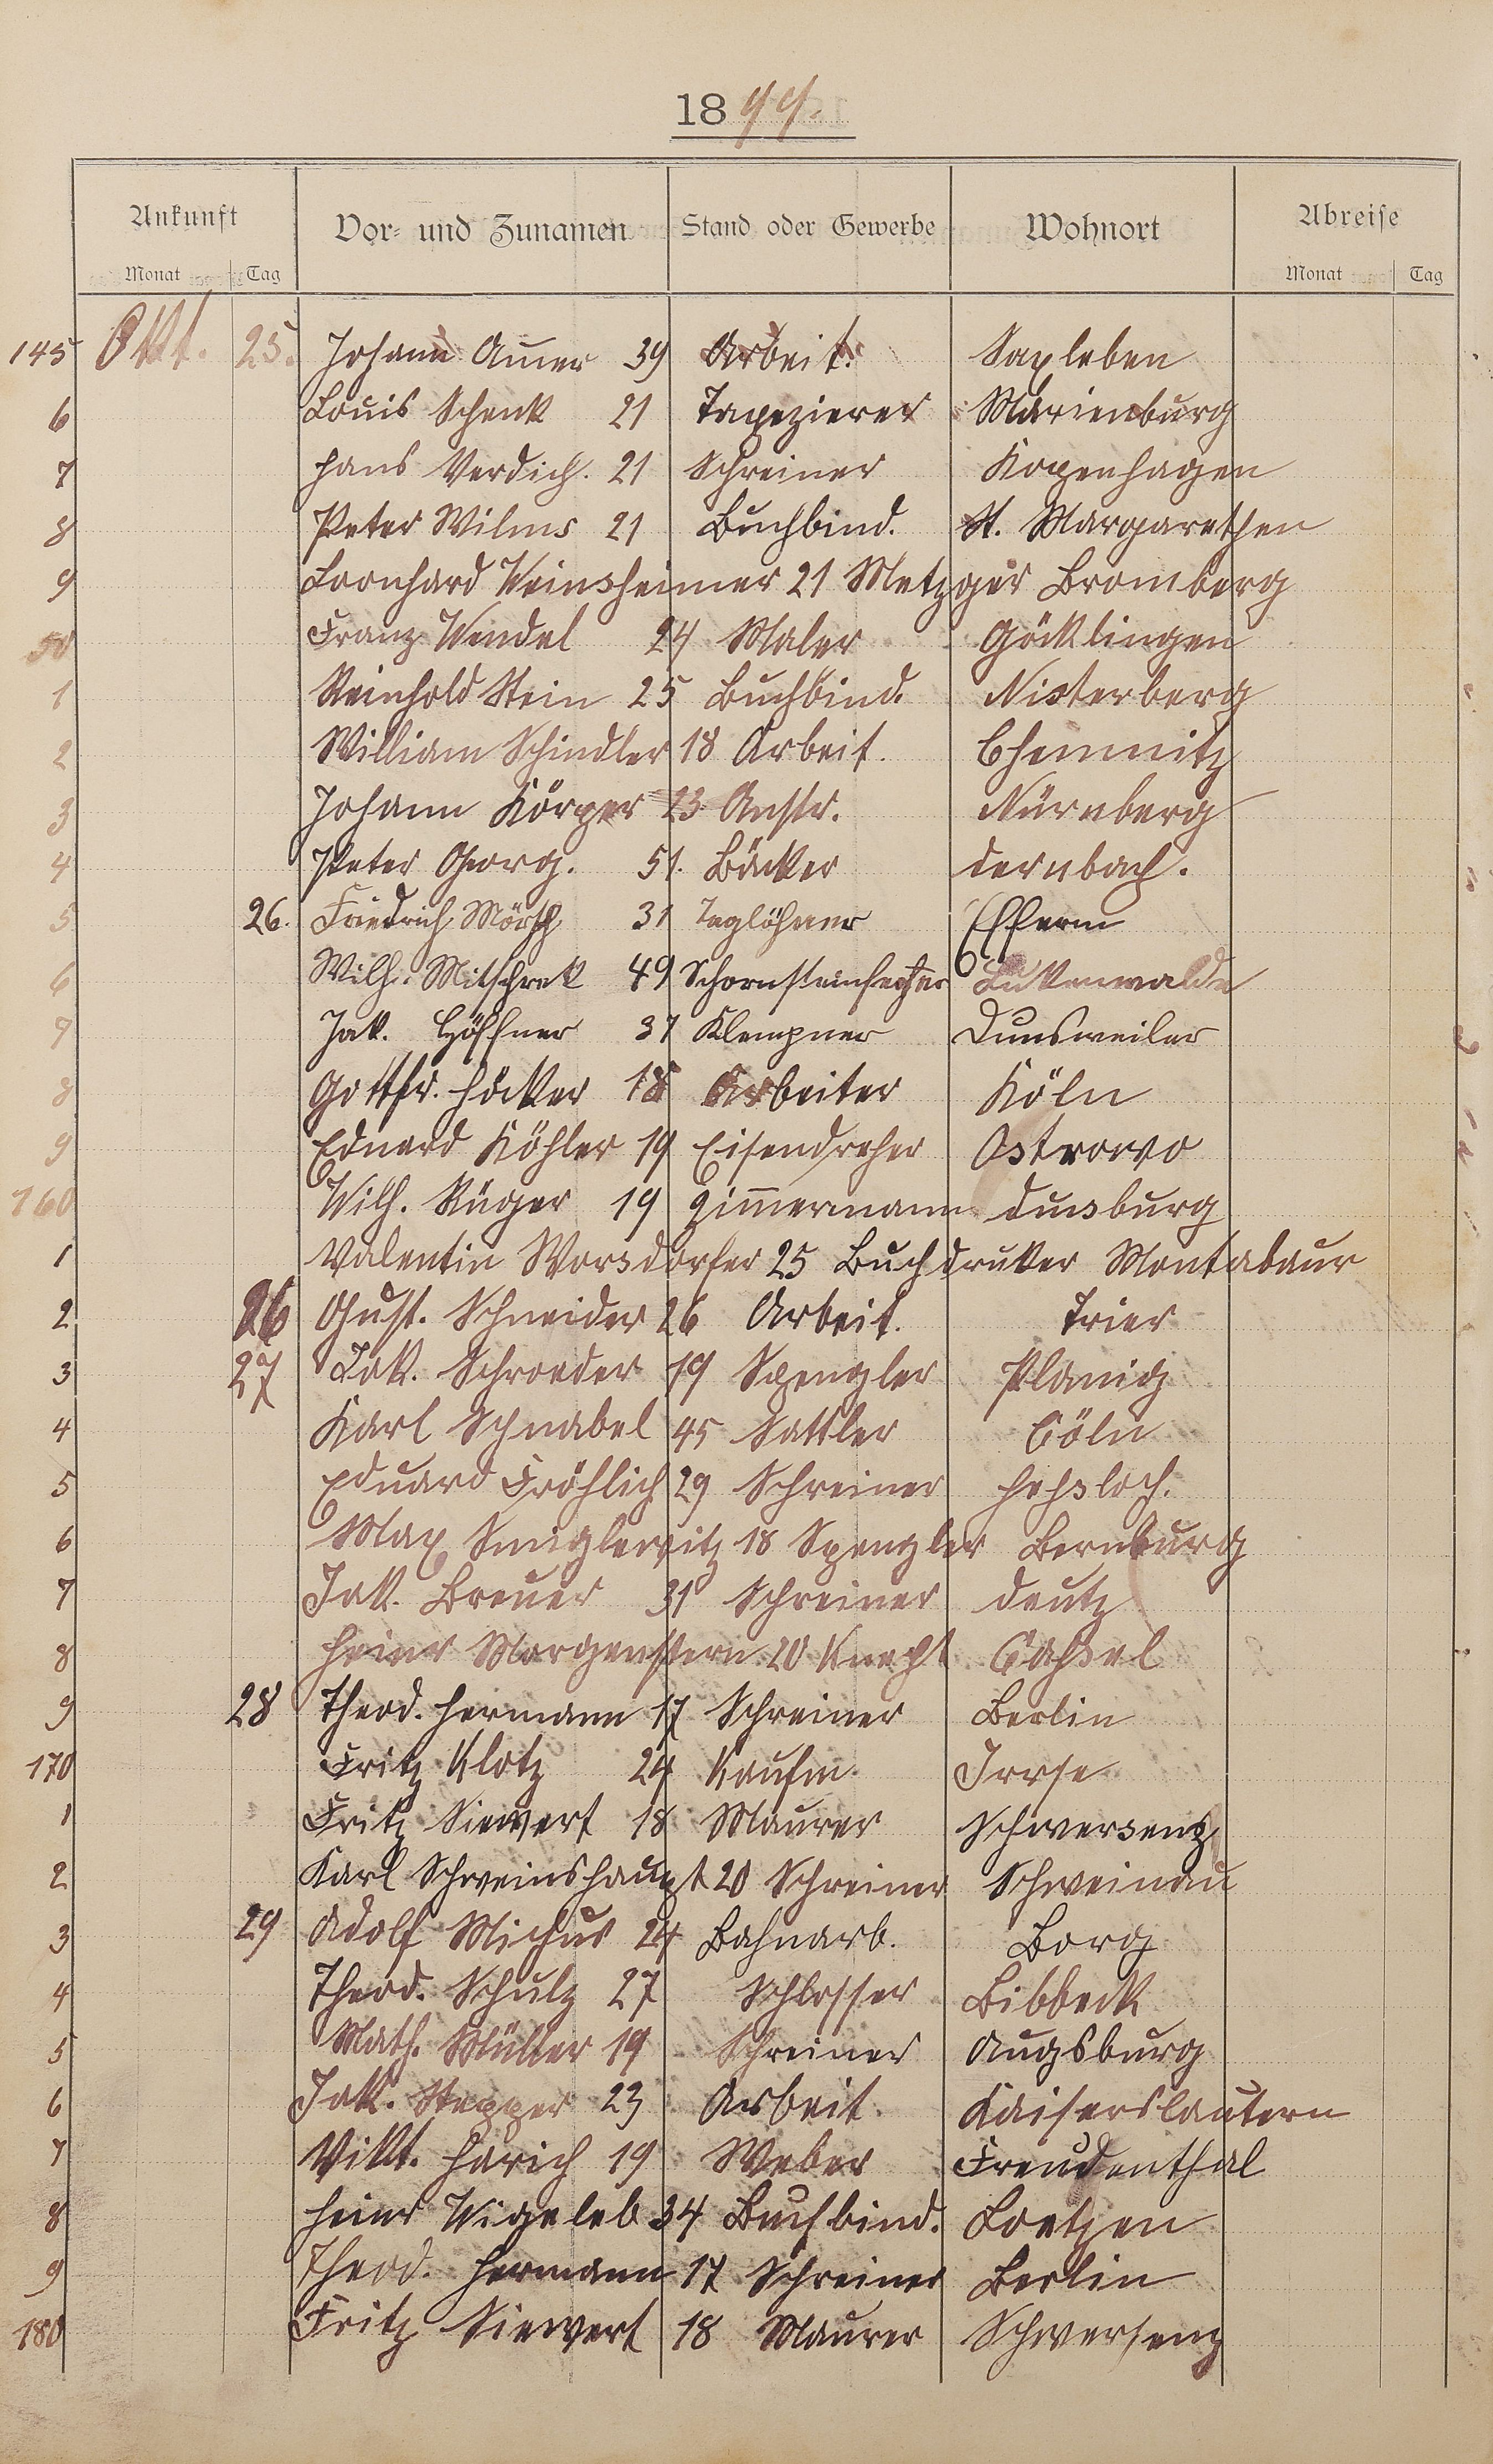 1899.
Ankunft Vor- und Zunamen Stand oder Gewerbe Wohnort Abreise
Monat Tag Monat Tag
145 Okt. 25. Johann Auer 39 Arbeit. Saxleben
6 Louis Schenk 21 Tapezierer Marienburg
7 Hans Verdich. 21 Schreiner Kopenhagen
8 Peter Wilms 21 Buchbind. St. Margarethen
9 Leonhard Weinsheimer 21 Metzger Bromberg
50 Franz Wendel 24 Maler Göcklingen
1 Reinhold Stein 25 Buchbind. Nisterberg
2 William Schindler 18 Arbeit. Chemnitz
3 Johann Körper 23 Anstr. Nürnberg
4 Peter Georg. 51. Bäcker Dernbach.
5 26. Friedrich Mörsch 31 Taglöhner Efferm
6 Wilh. Mitschrek 49 Schornsteinfeger Lukenwalde
7 Jak. Höffner 37 Klempner Dunsweiler
8 Gottfr. Höcker 18 Arbeiter Köln
9 Eduard Köhler 19 Eisendreher Ostrowo
160 Wilh. Rüger 19 Zimmermann Duisburg
1 Valentin Worsdorfer 25 Buchdruker Montabaur
2 26 Gust. Schneider 26 Arbeit. Trier
3 27 Jak. Schroeder 19 Spengler Planig
4 Karl Schnabel 45 Sattler Cöln
5 Eduard Fröhlich 29 Schreiner Hessloch.
6 Max Smiglewitz 18 Spengler Bernburg
7 Jak. Breuer 31 Schreiner Deutz
8 Heinr Morgenstern 20 Knecht Cassel
9 28 Theod. Hermann 17 Schreiner Berlin
170 Fritz Klotz 24 Kaufm. Irrse
1 Fritz Siewert 18 Maurer Schwersenz
2 Karl Schweinshaupt 20 Schreiner Schweinau
3 29 Adolf Michus 24 Bahnarb. Borg
4 Theod. Schulz 27 Schlosser Bibbeck
5 Math. Müller 19 Schreiner Augsburg
6 Jak. Stepper 23 Arbeit. Kaiserslautern
7 Vikt. Harich 19 Weber Freudenthal
8 Heinr Wigeleb 34 Buchbind. Loetzen
9 Theod. Hermann 17 Schreiner Berlin
180 Fritz Siewert 18 Maurer Schwersenz